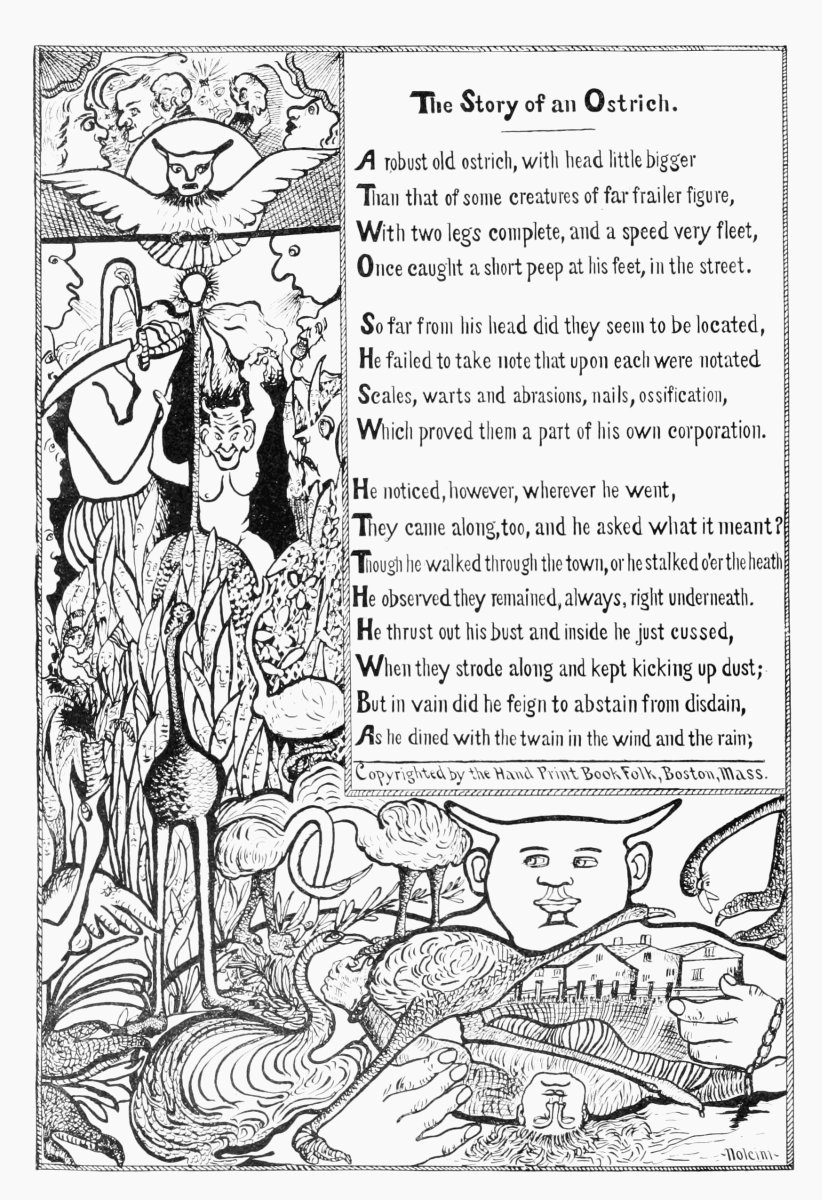 The Story of an Ostrich.
A robust old ostrich, with head little bigger
Than that of some creatures of far frailer figure,
With two legs complete, and a speed very fleet,
Once caught a short peep at his feet, in the street.
So far from his head did they seem to be located,
He failed to take note that upon each were notated
Scales, warts and abrasions, nails, ossification,
Which proved them a part of his own corporation.
He noticed, however, wherever he went,
They came along, too, and he asked what it meant?
Though he walked through the town, or he stalked o'er the heath
He observed they remained, always, right underneath.
He thrust out his bust and inside he just cussed,
When they strode along and kept kicking up dust;
But in vain did he feign to abstain from disdain,
As he dined with the twain in the wind and the rain;
Copyrighted by the Hand Print Book Folk, Boston, Mass.
-Nolcini-